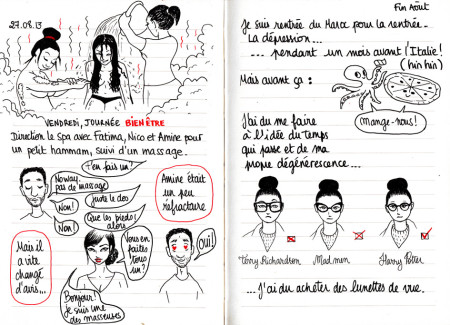 27.08.13
VENDREDI, JOURNÉE BIEN ÊTRE
Direction le Spa avec Fatima, Nico et Amine pour
un petit hammam, suivi d'un massage..
T'en fais un?
No way,
pas de massage
Non!
Juste le dos
Non!
Que les pieds
alors
Amine était
un peu
réfractaire
Mais il
a vite
changé
d'avis...
Vous en
faites
tous
un?
Oui!
Bonjour!
Je suis une
des masseuses
Fin Août
Je suis rentrée du Maroc pour la rentrée..
La dépression...
... pendant un mois avant l'Italie!
(hin hin)
Mais avant ça :
Mange-nous!
J'ai du me faire
à l'idée du temps
qui passe et de ma
propre dégénérescance...
Terry Richardson
Mad men
Harry Potter
... J'ai du acheter des lunettes de vue.